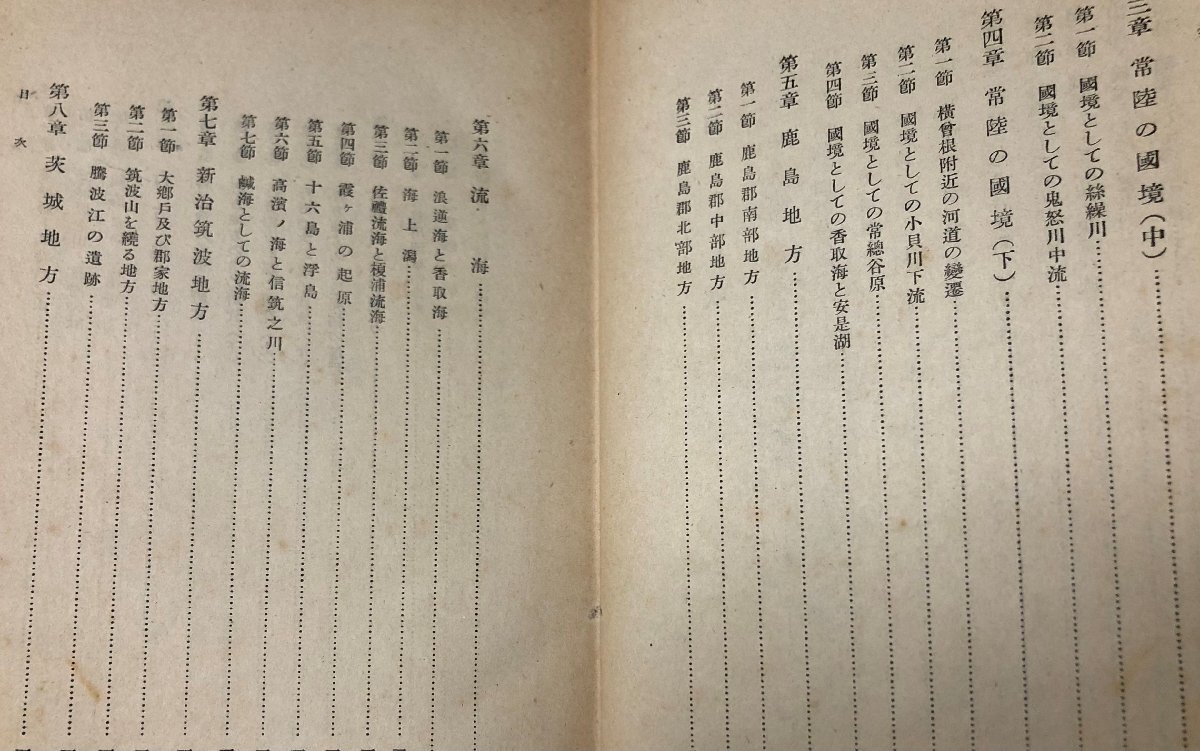 三章 常陸の國境(中)
第一節 國境としての絲繰川
第二節 國境としての鬼怒川中流
第四章 常陸の國境(下)
第一節 橫曾根附近の河道の變遷
第二節 國境としての小貝川下流
第三節 國境としての常總谷原
第四節 國境としての香取海と安是湖
第五章 鹿島地方
第一節 鹿島郡南部地方
第二節 鹿島郡中部地方
第三節 鹿島郡北部地方
第六章 流海
第一節 浪逆海と香取海
第二節 海上潟
第三節 佐禮流海と榎浦流海
第四節 霞ヶ浦の起原
第五節 十六島と浮島
第六節 高濱ノ海と信筑之川
第七節 鹹海としての流海
第七章 新治筑波地方
第一節 大鄕戶及び郡家地方
第二節 筑波山を繞る地方
第三節 騰波江の遺跡
第八章 茨城地方
目次